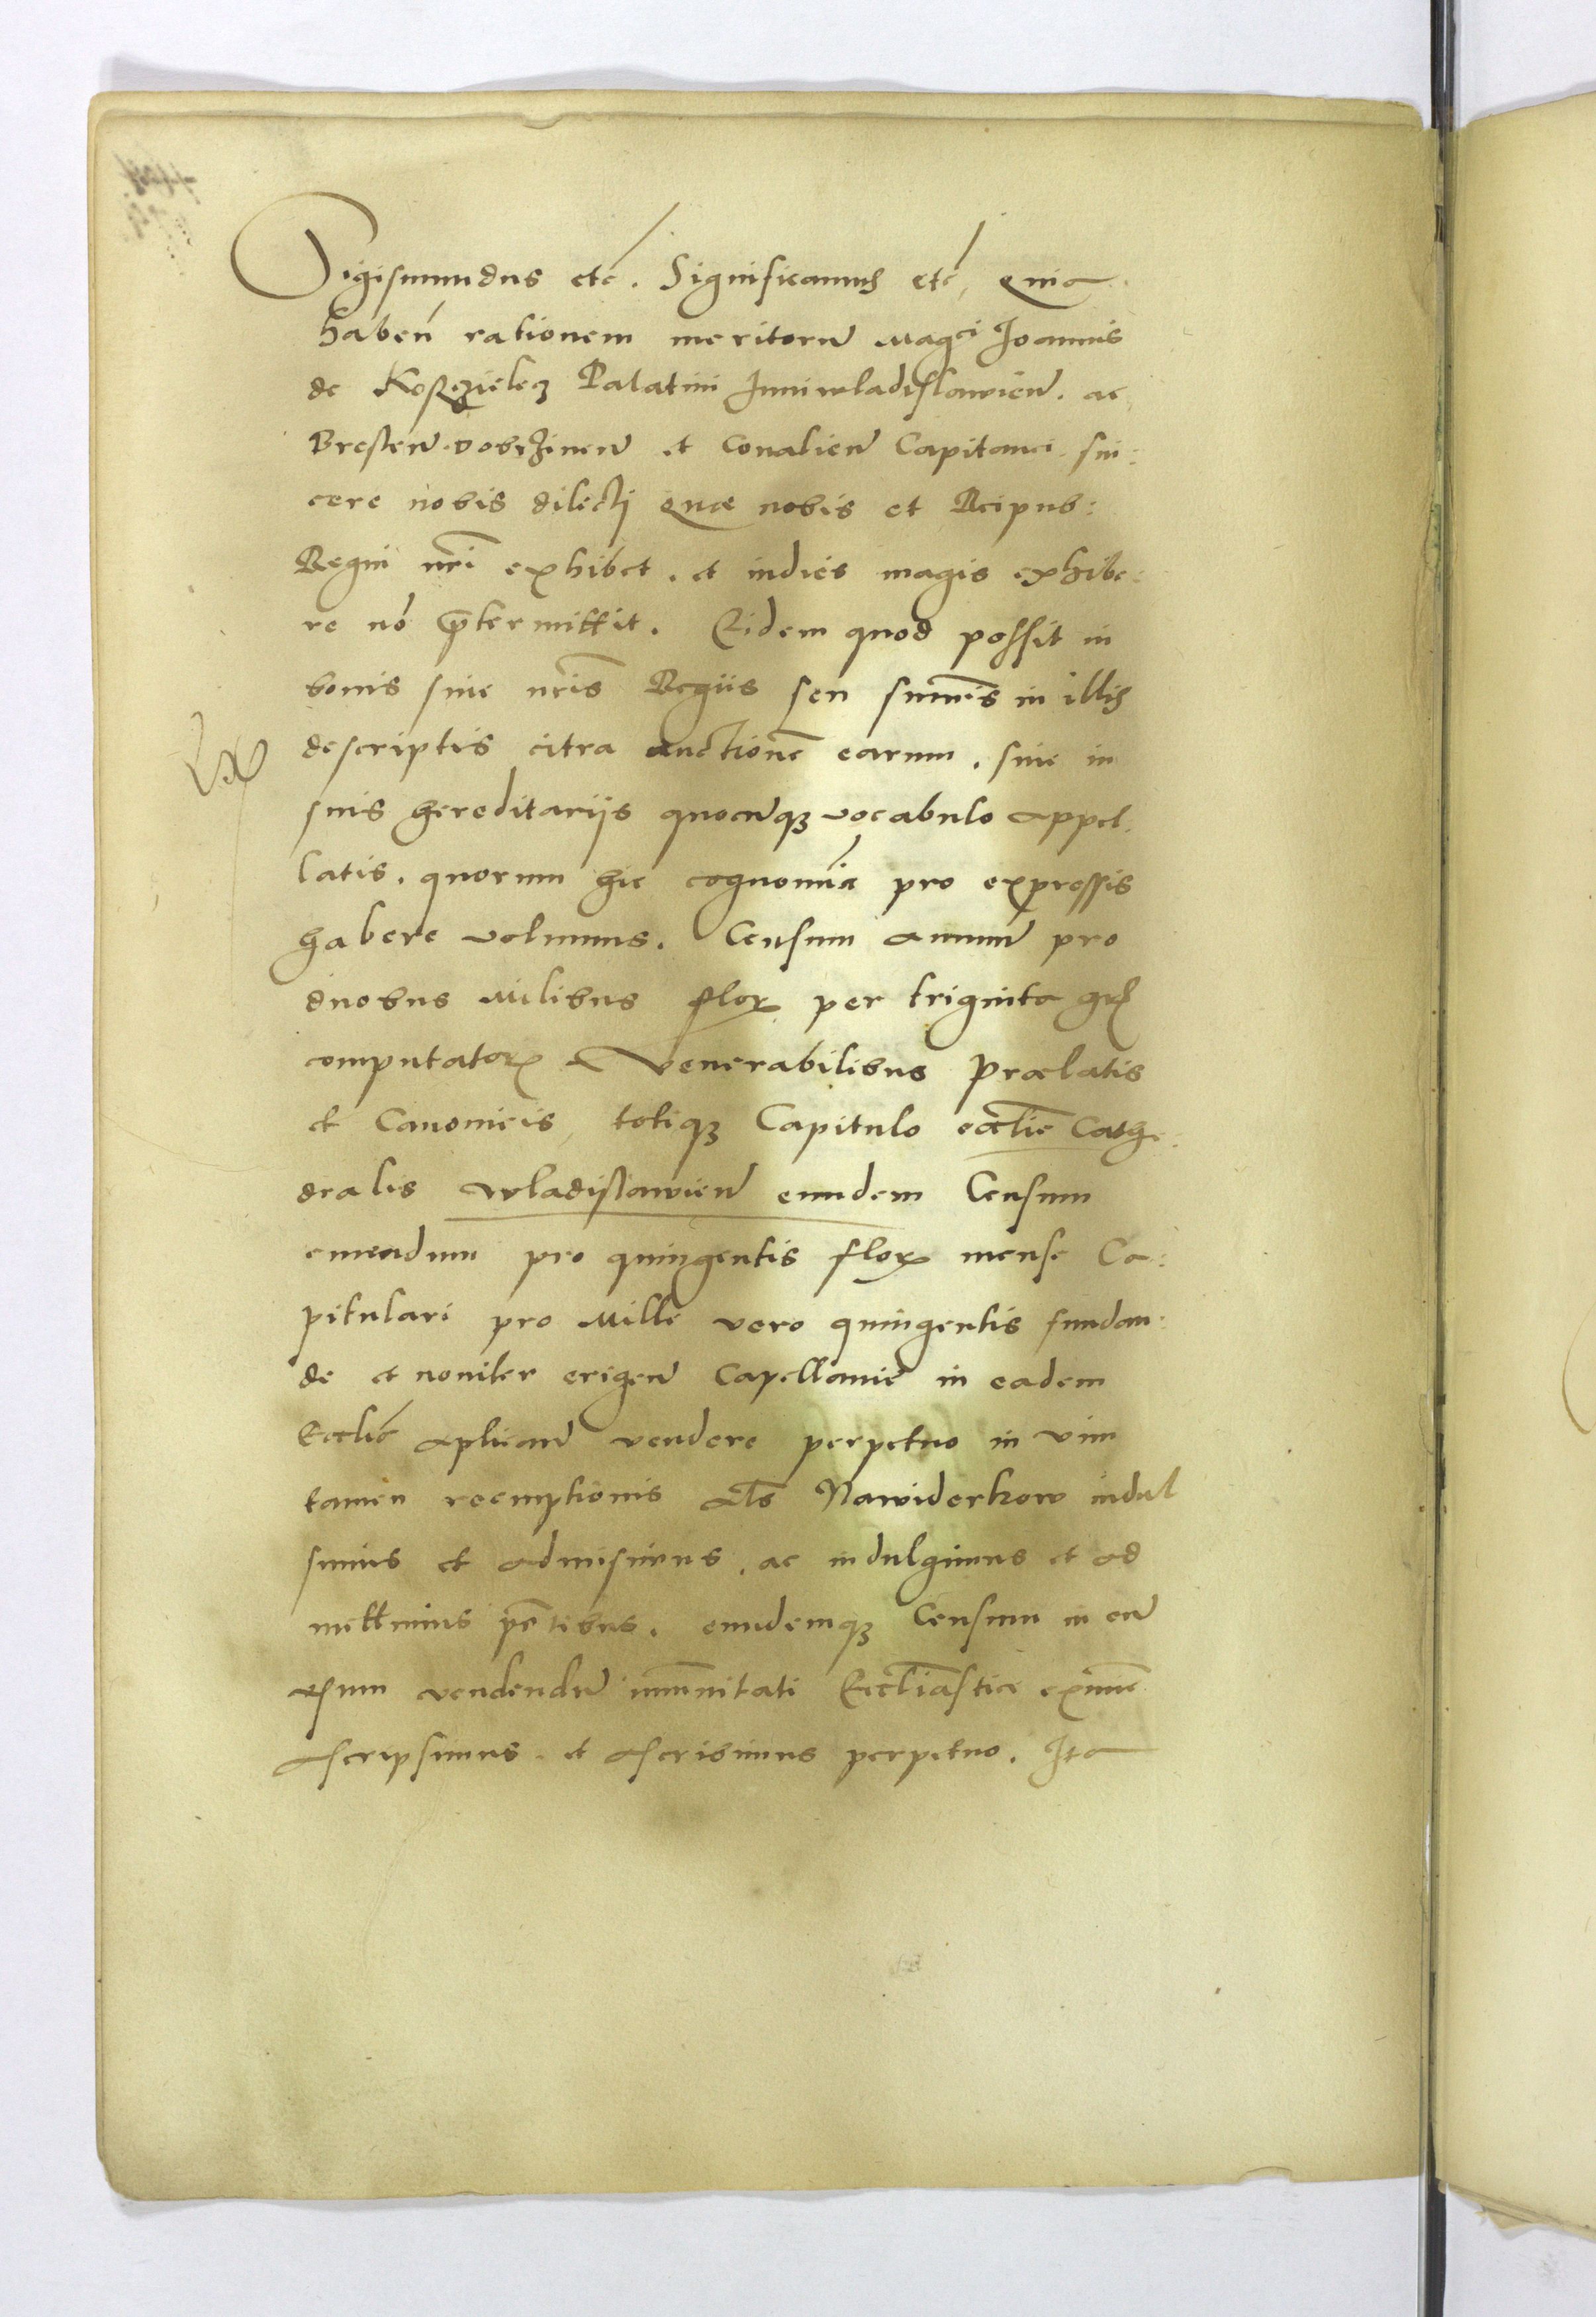 Sigismundus etc. Significamus etc, Quia
haben rationem meritorum Magci Joannis
de Koszczielecz Palatini Juniwladislawien. ac
Bresten. Dobrzinen et Conalien Capitanei. sin:
cere nobis dilecti quae nobis et Reipub:
Regni nri exhibet. et indies magis exhibe:
re nō prętermittit. Eidem quod possit in
bonis siue nris Regiis seu summis in illis
descriptis citra auctionē earum. siue in
suis hereditariis quocūqz vocabulo appel
latis. quorum hic cognomīa pro expressis
habere volumus. Censum annuū pro
duobus Milibus flor per triginta grs
computator a Venerabilibus Prælatis
et Canonicis, totiqz Capitulo ecclie Cathe:
dralis Wladislawien eundem Censum
emendum pro quingentis flor mensę Ca:
pitulari pro Mille vero quingentis fundan:
de et nouiter erigen Capellanie in eadem
Ecclia aplican vendere perpetuo in vim
tamen reemptionis als Nawiderkow indul
simus et admisimus. ac indulgimus et ad
mittimus pntibus. eundemqz Censum in eū
usum vendendū immunitati Ecclīasticę eximīe
ascripsimus. et ascribimus perpetuo. Ita